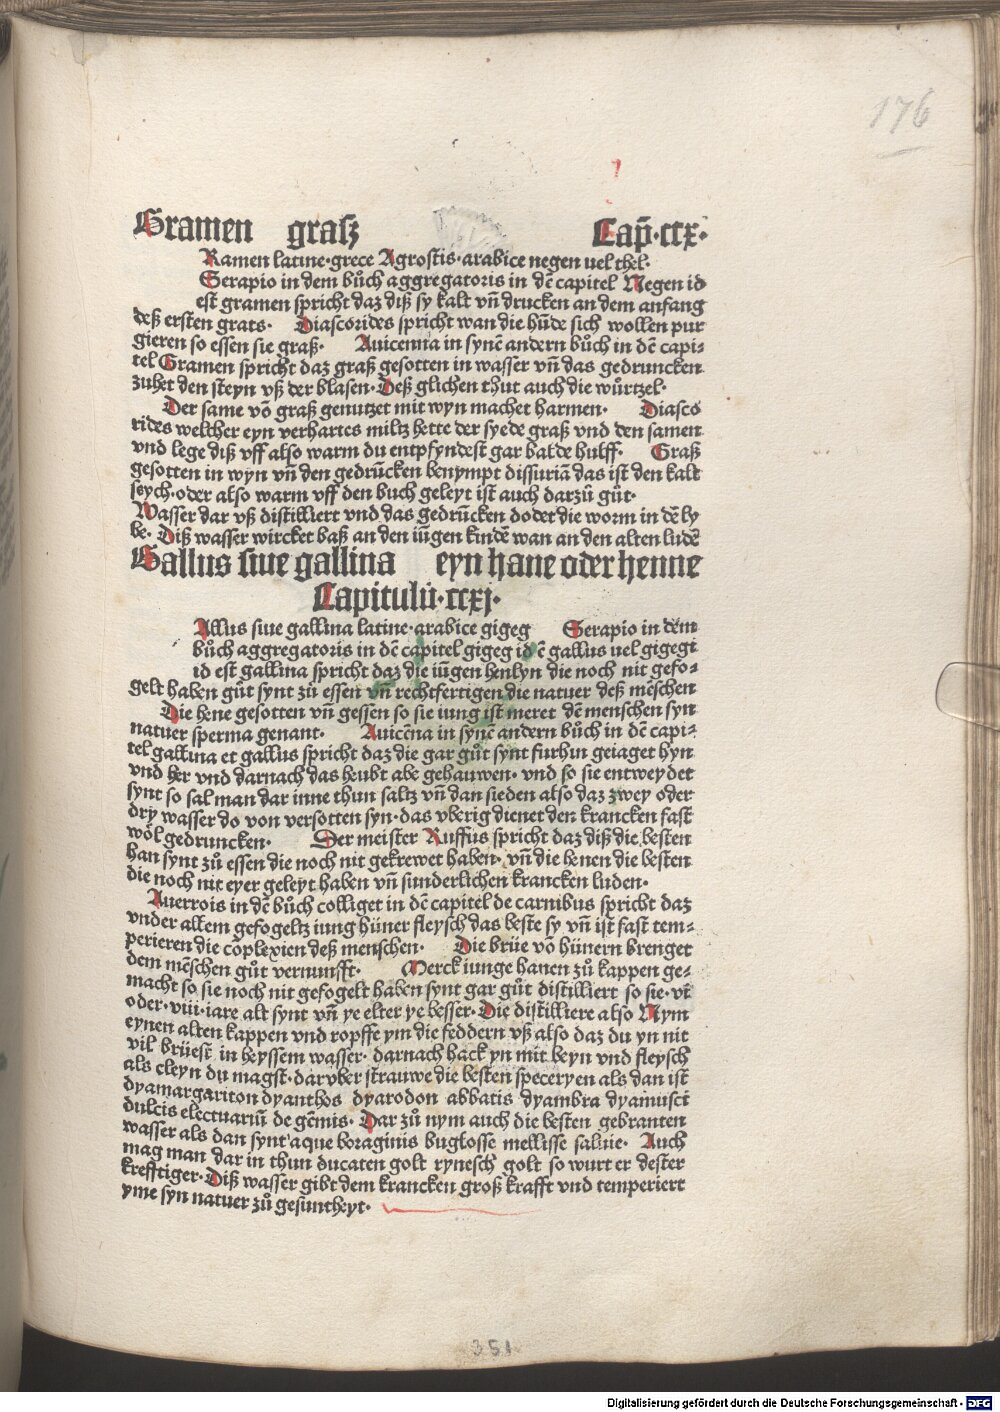 176
Gramen grasz Cap̄·ccx·
Ramen latine·grece Agrostis·arabice negen uel thel·
Serapio in dem bůch aggregatoris in dē capitel Negen id
est gramen spricht daz diß sy kalt vn̄ drucken an dem anfang
deß ersten grats· Diascorides spricht wan die hūde sich wollen pur
gieren so essen sie graß· Auicenna in synē andern bůch in dē capi⸗
tel Gramen spricht daz graß gesotten in wasser vn̄ das gedruncken
zuhet den steyn vß der blasen· Deß glichen thut auch die wůrtzel·
Der same vō graß genutzet mit wyn machet harmen· Diasco
rides welcher eyn verhartes miltz hette der syede graß vnd den samen
vnd lege diß vff also warm du entpfyndest gar balde hulff· Graß
gesotten in wyn vn̄ den gedrūcken benympt dissuriā das ist den kalt
seych·oder also warm vff den buch geleyt ist auch darzů gůt·
Wasser dar vß distilliert vnd das gedrūcken dodet die worm in dē ly
be· Diß wasser wircket baß an den iūgen kindē wan an den alten ludē
Gallus siue gallina eyn hane oder henne
Capitulū·ccxj·
Allus siue gallina latine·arabice gigeg Serapio in dem
bůch aggregatoris in dē capitel gigeg id ē gallus uel gigegi
id est gallina spricht daz die iūgen henlyn die noch nit gefo⸗
gelt haben gůt synt zů essen vn̄ rechtfertigen die natuer deß mēschen
Die hene gesotten vn̄ gessen so sie iung ist meret dē menschen syn
natuer sperma genant· Auicēna in synē andern bůch in dē capi⸗
tel gallina et gallus spricht daz die gar gůt synt furhin geiaget hyn
vnd her vnd darnach das heubt abe gehauwen· vnd so sie entweydet
synt so sal man dar inne thun saltz vn̄ dan sieden also daz zwey oder
dry wasser do von versotten syn·das vberig dienet den krancken fast
wol gedruncken· Der meister Ruffus spricht daz diß die besten
han synt zů essen die noch nit gekrewet haben· vn̄ die henen die besten
die noch nit eyer geleyt haben vn̄ sunderlichen krancken luden·
Auerrois in dē bůch colliget in dē capitel de carnibus spricht daz
vnder allem gefogeltz iung hüner fleysch das beste sy vn̄ ist fast tem⸗
perieren die cōplexien deß menschen· Die brüe vō hünern brenget
dem mēschen gůt vernunfft· Merck iunge hanen zů kappen ge⸗
macht so sie noch nit gefogelt haben synt gar gůt distilliert so sie·vi
oder·viii·iare alt synt vn̄ ye elter ye besser· Die distilliere also Nym
eynen alten kappen vnd ropffe ym die feddern vß also daz du yn nit
vil brüest in heyssem wasser· darnach hack yn mit beyn vnd fleysch
als cleyn du magst·darvber strauwe die besten speceryen als dan ist
dyamargariton dyanthos dyarodon abbatis dyambra dyamusci
dulcis electuariū de gēmis· Dar zů nym auch die besten gebranten
wasser als dan synt aque boraginis buglosse mellisse saluie· Auch
mag man dar in thun ducaten golt rynesch golt so wurt er dester
krefftiger· Diß wasser gibt dem krancken groß krafft vnd temperiert
yme syn natuer zů gesuntheyt·
351
Digitalisierung gefördert durch die Deutsche Forschungsgemeinschaft - DFG